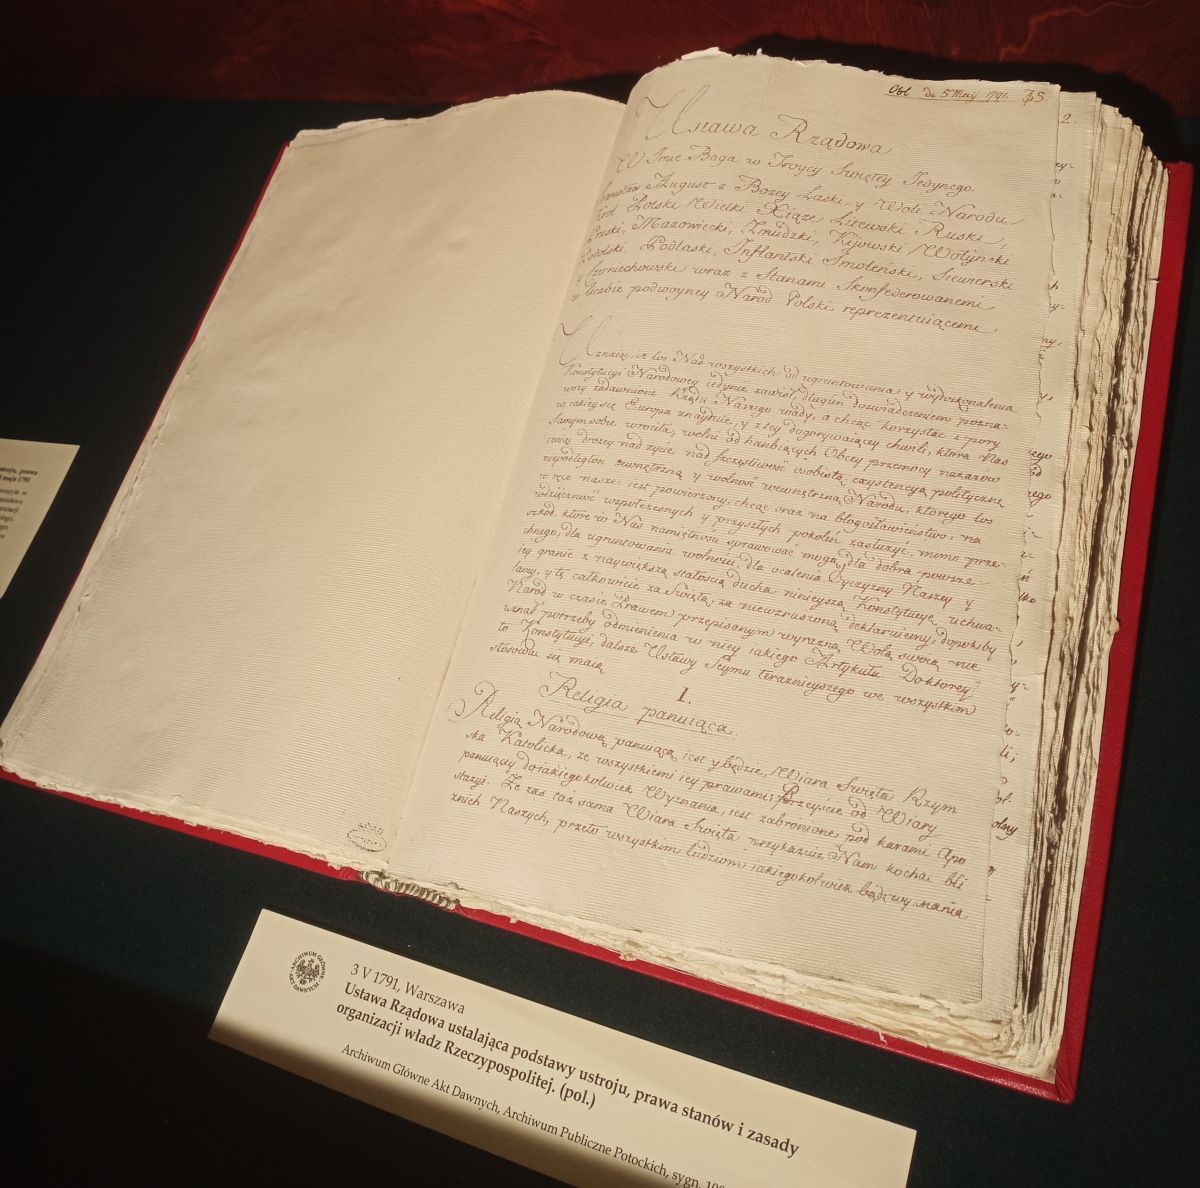 Obl de 5 Maij 1791. 35.
2.
Ustawa Rządowa
W Imie Boga w Troycy Swiętey Jedynego.
Stanisław August z Bozey Łaski y Woli Narodu
Krol Polski Wielki Xiąze Litewski Ruski,
Pruski, Mazowiecki, Zmudzki, Kijowski Wołyński
Podolski, Podlaski, Inflantski Smoleński, Siewierski
y Czerniechowski wraz z Stanami Skonfederowanemi
w liczbie podwoyney Narod Polski reprezentuiącemi,
Uznaiąc, iż los Nas wszystkich od ugruntowania y wydoskonalenia
Konstytucyi Narodowey iedynie zawisł, długim doswiadczeniem pozna-
wszy zadawnione Rządu Naszego wady, a chcąc korzystać z pory
w iakiey się Europa znayduie, y z tey dogorywaiącey chwili, ktora Nas
samym sobie wrociła, wolni od hanbiących Obcey przemocy nakazow
ceniąc drozey nad zycie, nad szczęsliwosć osobistą, exystencyą polityczną
niepodległosć zewnętrzną y wolnosć wewnętrzną Narodu, ktorego los
w ręce nasze iest powierzony, chcąc oraz na błogosławieństwo, na
wdzięcznosć wspołczesnych y przyszłych pokoleń zasłuzyć, mimo prze-
szkod, ktore w Nas namiętnosci sprawować mogą, dla dobra powsze-
chnego, dla ugruntowania wolnosci, dla ocalenia Oyczyzny Naszey y
iey granic z naywiększą stałoscią ducha ninieyszą Konstytucyę uchwa-
lamy, y tę całkowicie za Swiętą, za niewzruszoną deklaruiemy, dopokiby
Narod w czasie Prawem przepisanym wyrazną Wolą swoią nie
uznał potrzeby odmienienia w niey iakiego Artykułu. Doktorey
to Konstytucyi, dalsze Ustawy Seymu teraznieyszego we wszystkim
stosować się maią
I.
Religia panuiąca.
Religią Narodową panuiącą iest y będzie, Wiara Swięta Rzym
ska Katolicka, ze wszystkiemi iey prawami; Przeyscie od Wiary
panuiącey do iakiegokolwiek Wyznania, iest zabronione pod karami Apo
stazyi. Ze zaś taż sama Wiara Swięta przykazuie Nam kochać bli
znich Naszych, przeto wszystkim ludziom iakiegokolwiek bądź wyznania
ARCHIWUM GŁÓWNE AKT DAWNYCH
3 V 1791, Warszawa
Ustawa Rządowa ustalająca podstawy ustroju, prawa stanów i zasady
organizacji władz Rzeczypospolitej. (pol.)
Archiwum Główne Akt Dawnych, Archiwum Publiczne Potockich, sygn.